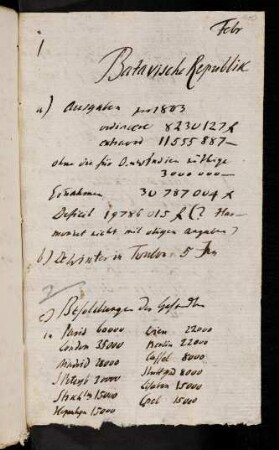 Febr
1
Batavische Republik
a) Ausgaben pro 1803
ordinaere 8230127 f
extraord 11555887-
ohne die für Ostindien nöthige
3000000-
Einahmen 30787004 f
Deficit 19786015 f (? Har-
monirt nicht mit obigen angaben)
b) deWinter in Toulon 5 Jan
2
c) Besoldungen der Gesandten
in Paris 60000 Wien 22000
London 35000 Berlin 22000
Madrid 28000 Cassel 8000
S Petersb 30000 Stuttgard 8000
Stockh 15000 Lissabon 15000
Copenhagen 15000 15000